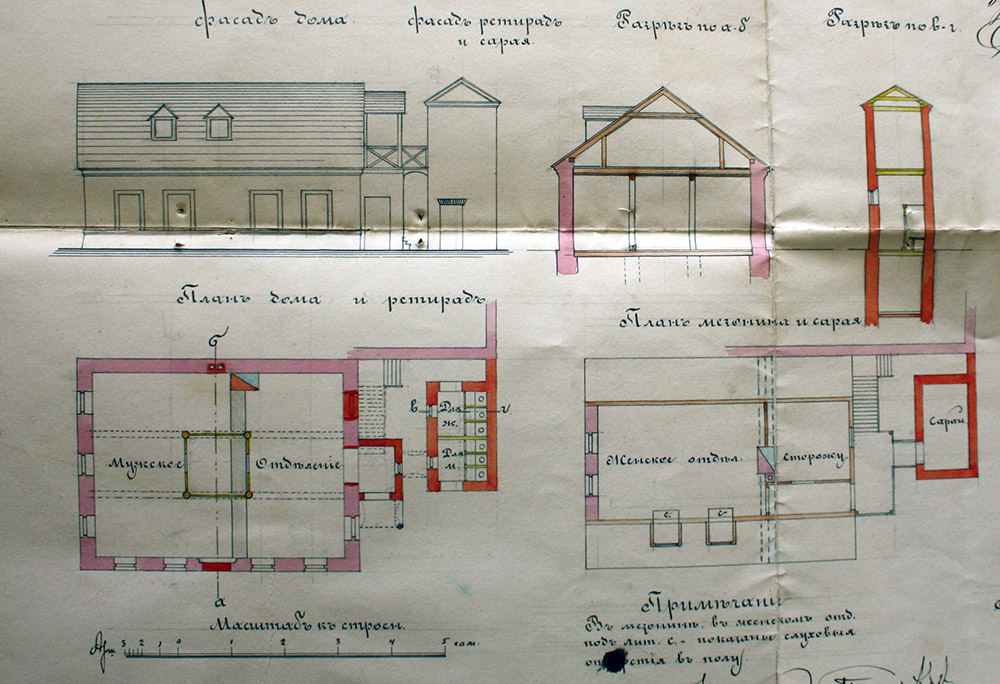 фасадъ дома.
фасадъ ретирадъ
и сарая.
Разрѣзъ по а-б
Разрѣзъ по в-г.
Планъ дома и ретирадъ
Планъ мезонина и сарая
б
в
г
Для
ж.
Для
м.
Мужское Отдѣленіе
а
Женское отдѣл.
Сторожу.
Сарай
с.
с.
Масштабъ къ строен.
Арш 3 2 1 0 1 2 3 4 5 саж.
Примѣчаніе
Въ мезонинѣ, въ женскомъ отд.
подъ лит. с,- показаны слуховыя
въ полу